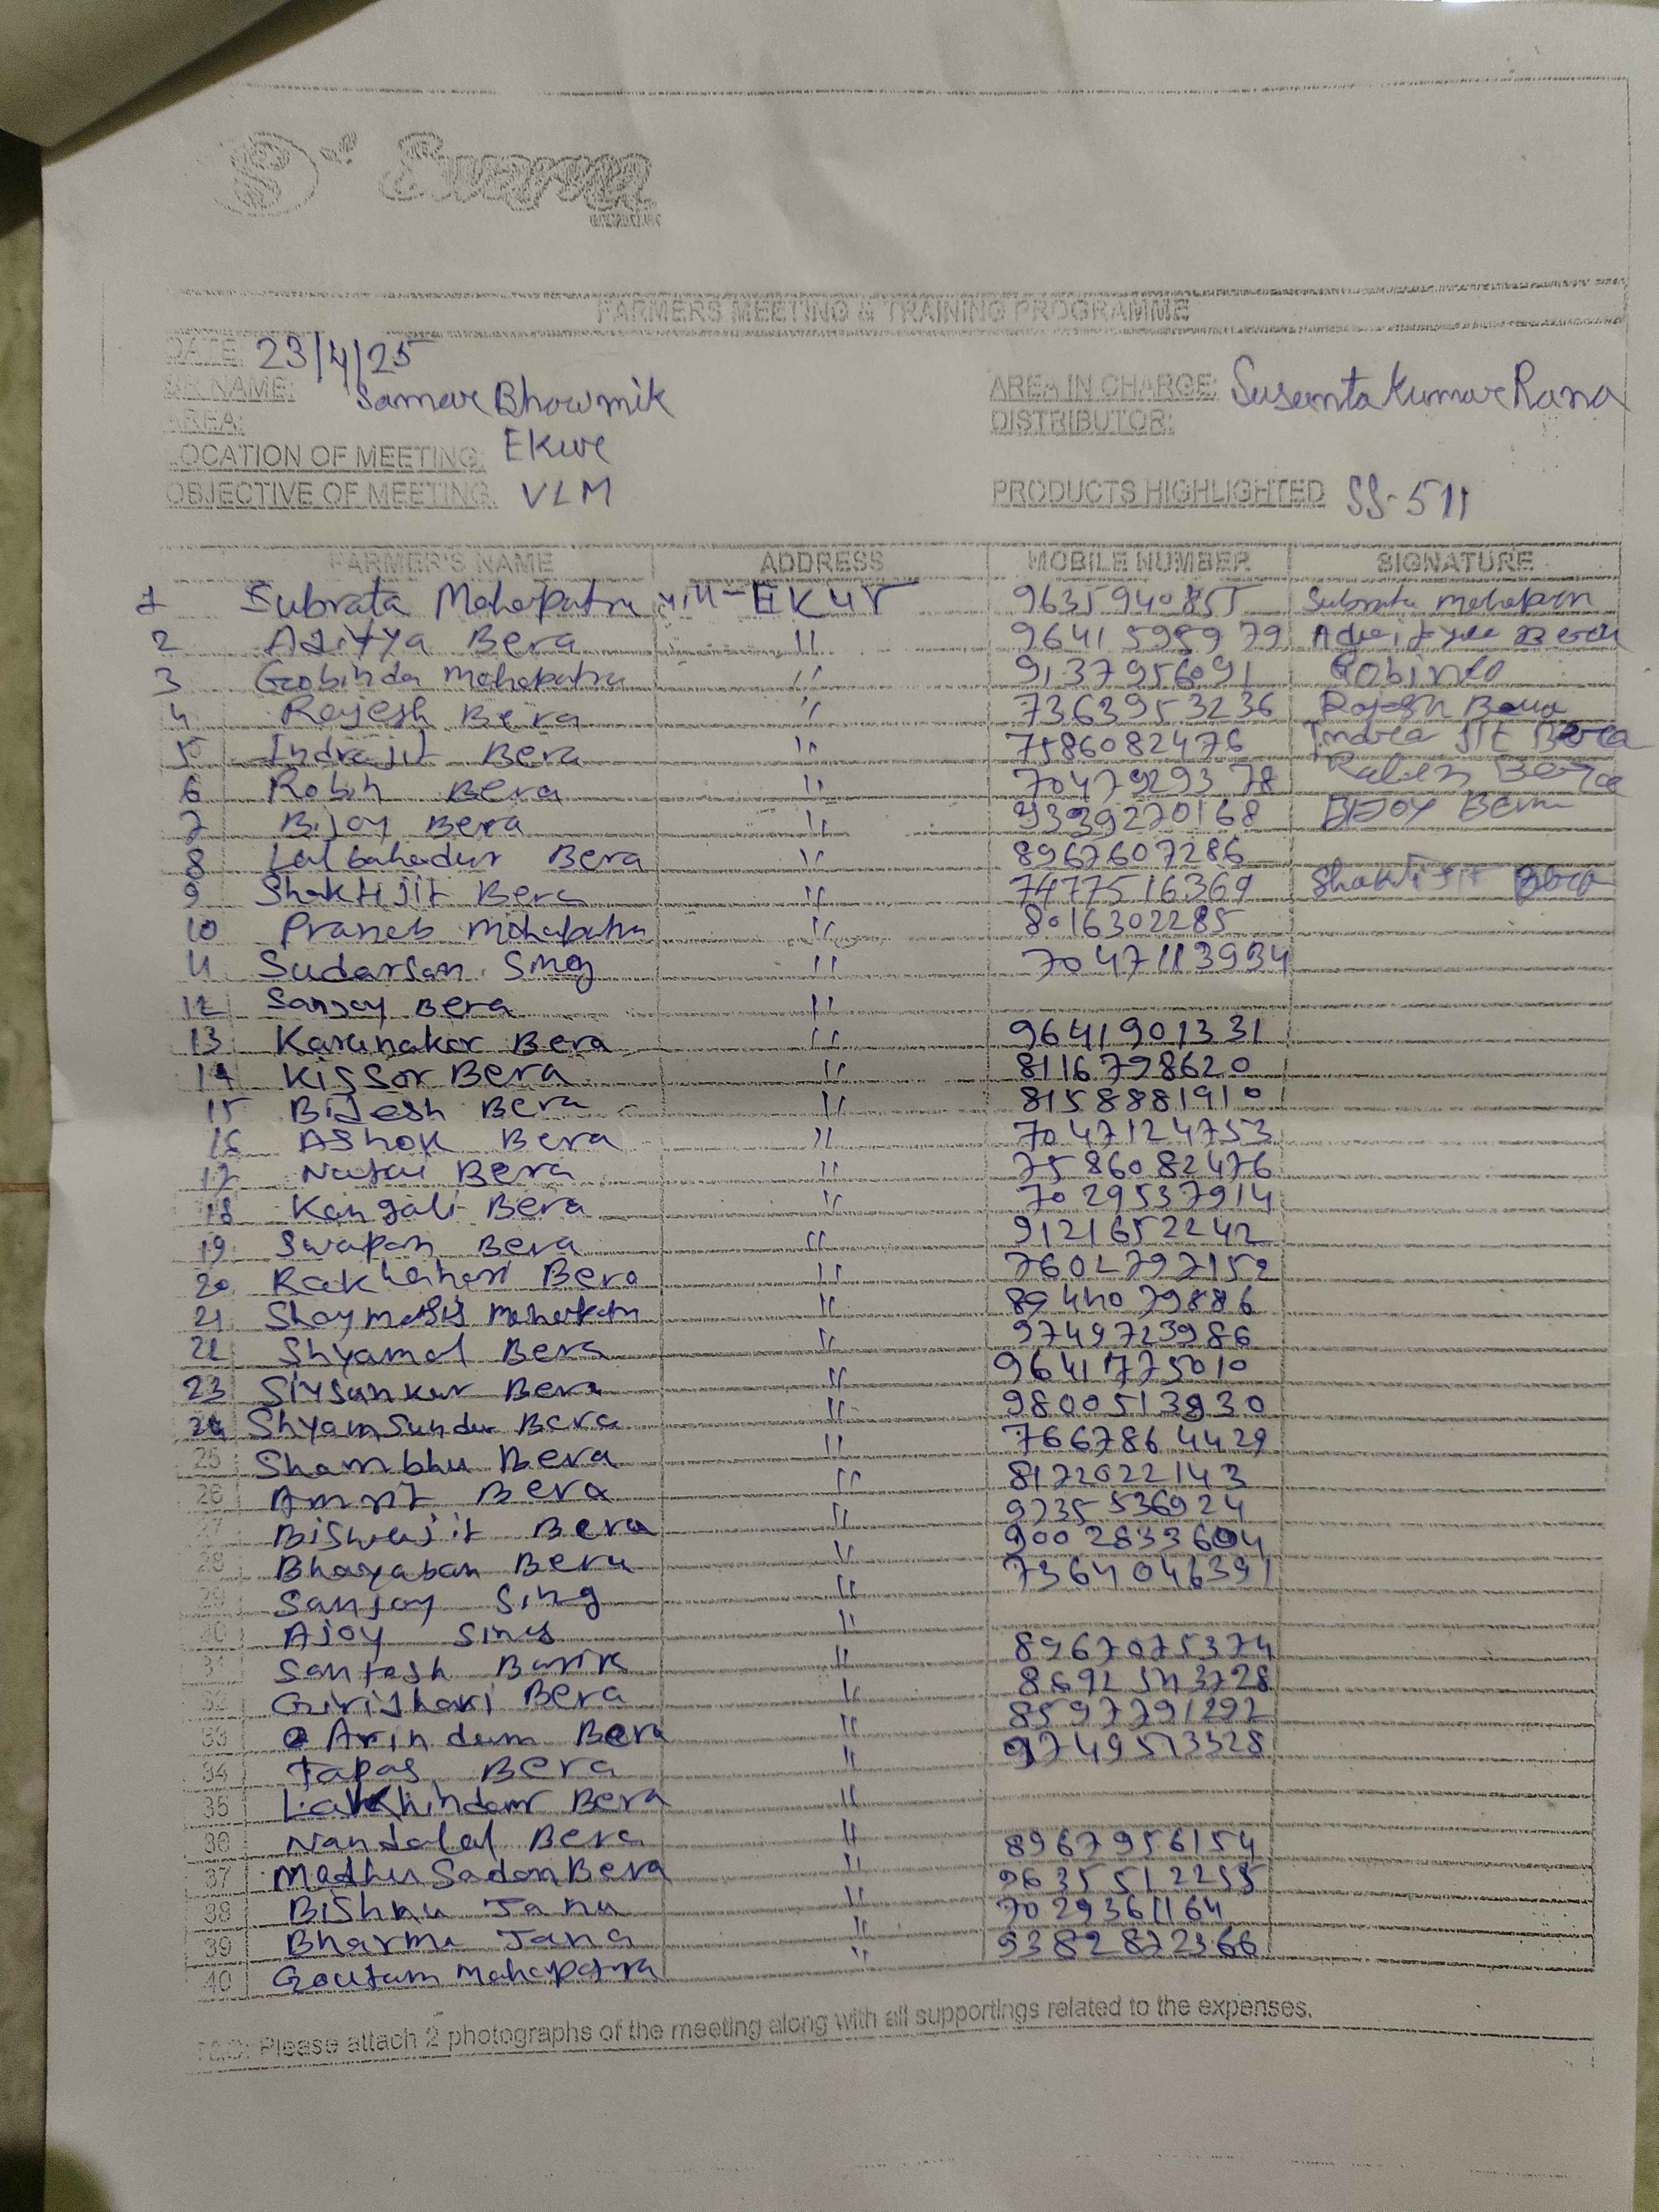 FARMERS MEETING & TRAINING PROGRAMME
DATE: 23/4/25
SR NAME: Samar Bhowmik AREA IN CHARGE: Susanta Kumar Rana
AREA: DISTRIBUTOR:
LOCATION OF MEETING: Ekur
OBJECTIVE OF MEETING: VLM PRODUCTS HIGHLIGHTED SS-511
FARMER'S NAME ADDRESS MOBILE NUMBER SIGNATURE
1 Subrata Mahapatra vill-EKUR 9635940855 Subrata Mahapatra
2 Aditya Bera " 9641598979
3 Gobinda Mahapatra " 9137956091 Gobinda
4 Rajesh Bera " 7363953236 Rajesh Bera
5 Indrajit Bera " 7586082476 Indra JIT Bera
6 Robin Bera " 7047929378 Bera
7 Bijoy Bera " 9339270168 BIJOY Bera
8 Lalbahadur Bera " 8967607286
9 Shaktijit Bera " 7477516369 Shakti JIT Bera
10 Pranab Mahapatra " 8016302285
11 Sudarsan Sing " 7047113934
12 Sanjoy Bera "
13 Karunakar Bera " 9641901331
14 Kissor Bera " 8116798620
15 Bijesh Bera " 8158881910
16 Ashok Bera " 7047124753
17 Natai Bera " 7586082476
18 Kangali Bera " 7029537914
19 Swapan Bera " 9121652242
20 Rakhahari Bera " 7602797152
21 " 8944079886
22 Shyamal Bera " 9749723986
23 Sivsankar Bera " 9641775010
24 Shyamsundar Bera " 9800513930
25 Shambhu Bera " 7667864429
26 Amrit Bera " 8172022143
27 Biswajit Bera " 9735536924
28 Bhagaban Bera " 9002833604
29 Sanjoy Sing " 7364046391
30 Ajoy Sing "
31 Santosh Barik " 8967075374
32 Girishari Bera "
33 Arindam Bera " 8597791292
34 Tapas Bera " 9749513328
35 Lakhindar Bera "
36 Nandalal Bera " 8967956154
37 Madhusadan Bera " 9635512255
38 Bishnu Jana " 7029361164
39 Bharma Jana " 9382872366
40 Goutam Mahapatra "
Please attach 2 photographs of the meeting along with all supportings related to the expenses.